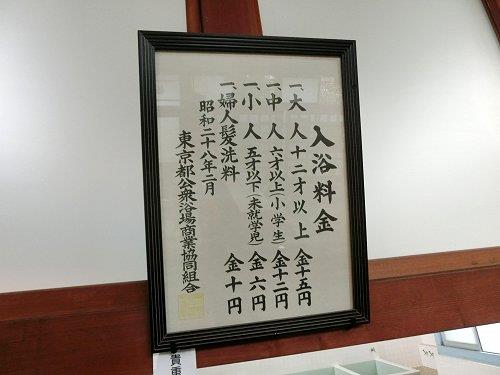 入浴料金
一、大人 十二才以上 金十五円
一、中人 六才以上(小学生) 金十二円
一、小人 五才以下(未就学児) 金六円
一、婦人髪洗料 金十円
昭和二十八年二月
東京都公衆浴場商業協同組合
貴重